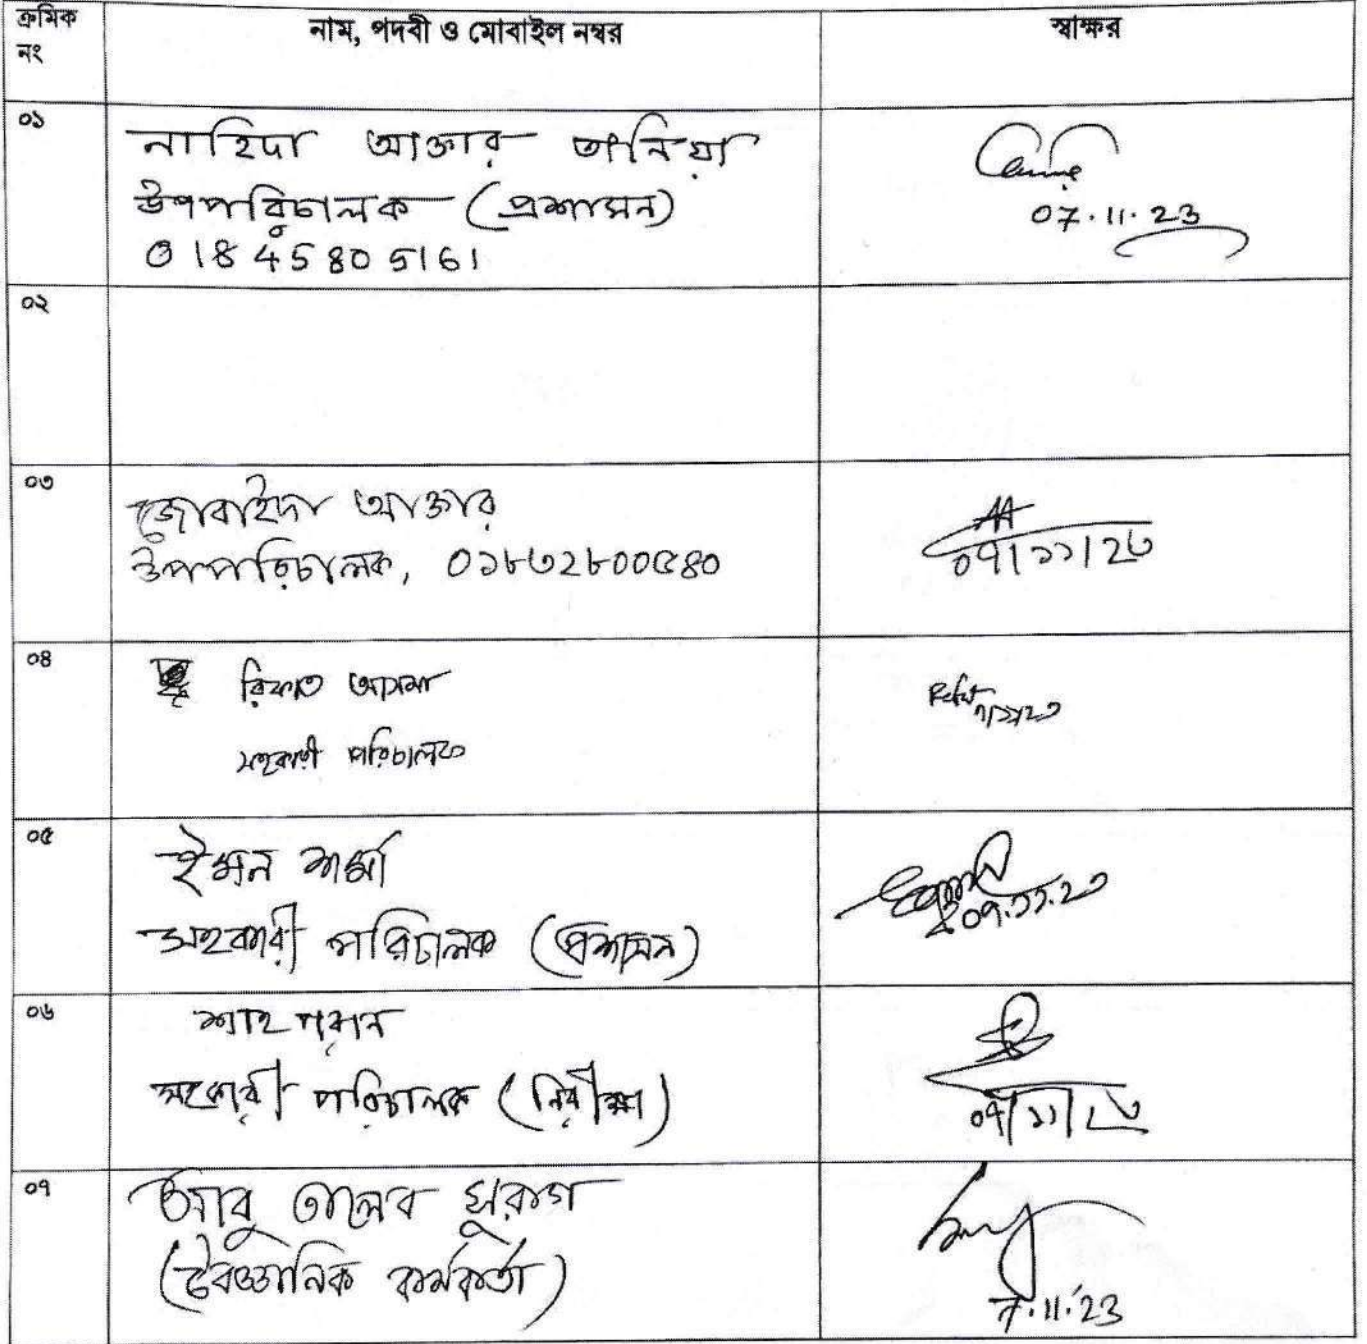 ক্রমিক নং
নাম, পদবী ও মোবাইল নম্বর
স্বাক্ষর
০১
নাহিদা আক্তার তানিয়া
উপপরিচালক (প্রশাসন)
01845805161
07.11.23
০২
০৩
জোবাইদা আক্তার
উপপরিচালক, ০১৮৩২৮০০৫৪০
০৭/১১/২৩
০৪
রিফাত আসমা
সহকারী পরিচালক
৭/১১/২৩
০৫
ইমন শর্মা
সহকারী পরিচালক (প্রশাসন)
০৭.১১.২৩
০৬
শাহ পরান
সহকারী পরিচালক (নিরীক্ষা)
০৭/১১/২৩
০৭
আবু তালেব সুরাগ
(বৈজ্ঞানিক কর্মকর্তা)
7.11.23